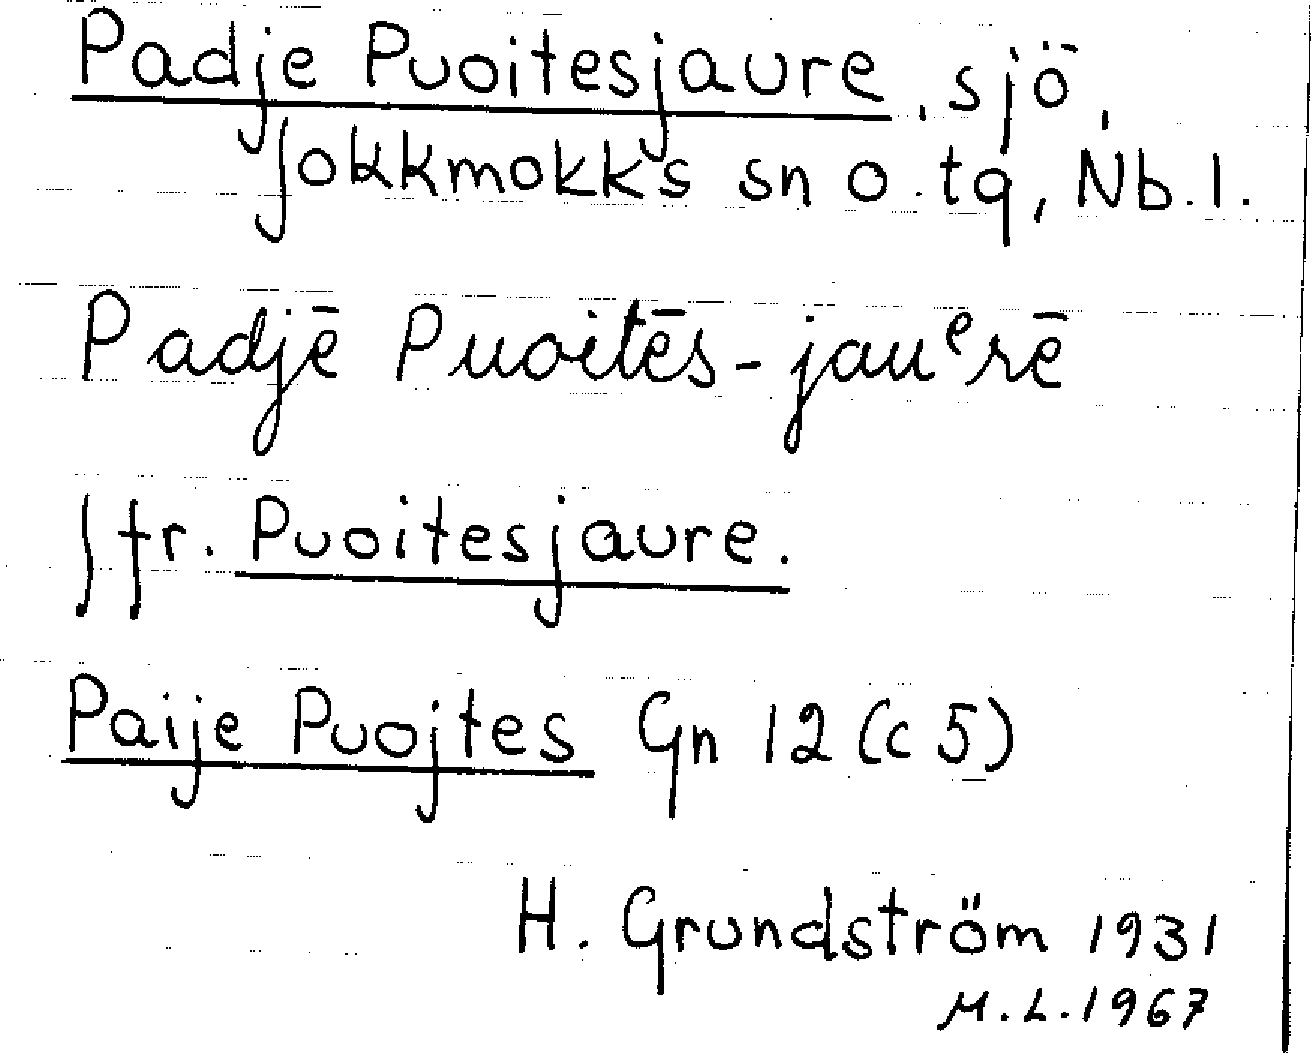 Padje Puoitesjaure, sjö,
Jokkmokks sn o. tg, Nb. l.
Padjē Puoitēs-jauᵉrē
Jfr. Puoitesjaure.
Paije Puojtes Gn 12 (c 5)
H. Grundström 1931
M.L. 1967